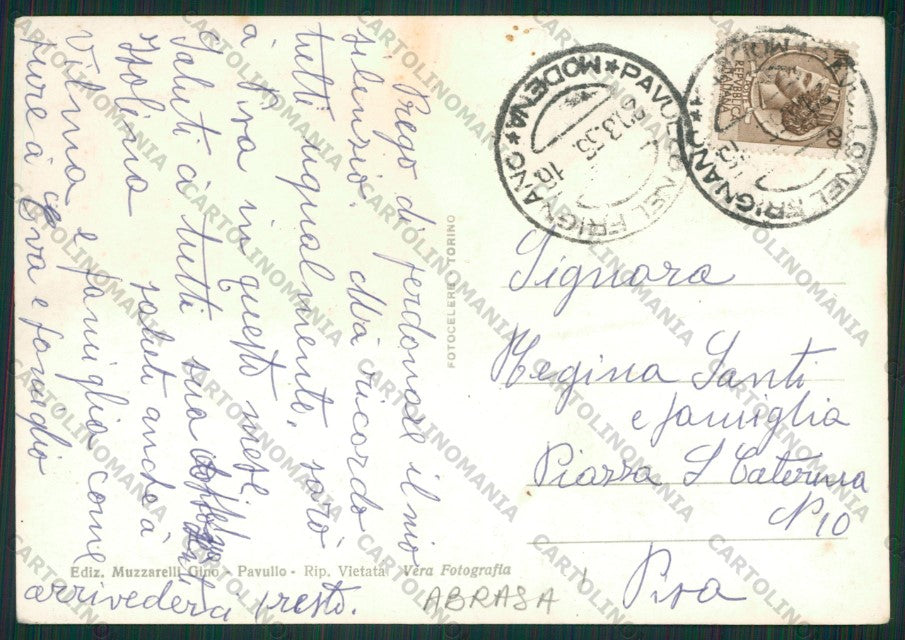 Prego di perdonare il mio
silenzio. Ma ricordo
tutti ugualmente, sarò
a Pisa in questo mese.
Saluti a tutti sua
Isolina saluti anche a
Vilma e famiglia come
pure a Eva e famiglia
arrivederci presto.
FOTOCELERE TORINO
PAVULLO NEL FRIGNANO
* MODENA *
18
.3.55
PAVULLO NEL FRIGNANO
20
REPUBBLICA
ITALIANA
Signora
Regina Santi
e famiglia
Piazza S Caterina
N 10
Pisa
Ediz. Muzzarelli Gino - Pavullo - Rip. Vietata Vera Fotografia
ABRASA
CARTOLINOMANIA